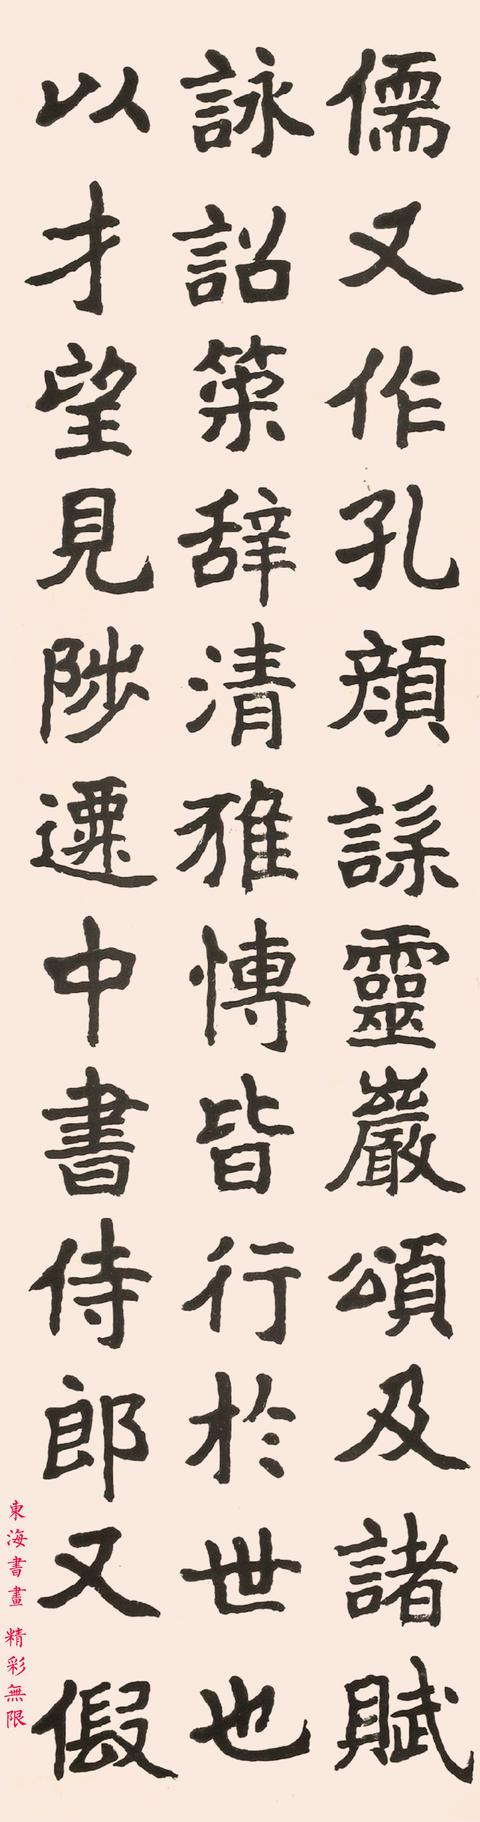 儒又作孔顏謡靈巖頌及諸賦
詠詔策辞清雅博皆行於世也
以才望見陟遷中書侍郎又假
東海書畫 精彩無限